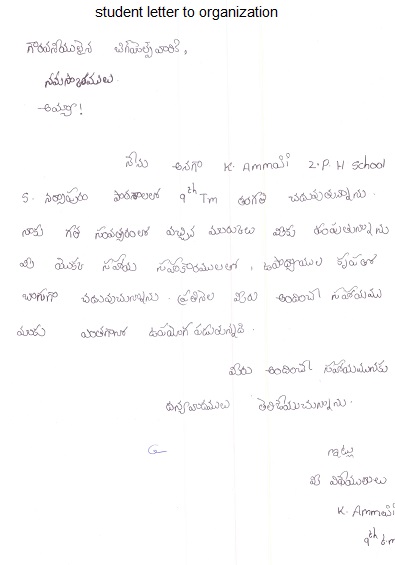 student letter to organization
గౌరవనీయులైన బిగ్‌హెల్ప్ వారికి,
నమస్కారములు.
అయ్యా!
నేను అనగా K. Ammaji Z.P.H School
S. నర్సాపురం పాఠశాలలో 9th Tm తరగతి చదువుతున్నాను.
నాకు గత సంవత్సరంలో వచ్చిన మార్కులు మీకు పంపుతున్నాను
మీ యొక్క సహాయ సహకారములతో, ఉపాధ్యాయుల కృపతో
బాగుగా చదువుచున్నాను. ప్రతినెల మీరు అందించే సహాయము
మాకు ఎంతగానో ఉపయోగ పడుతున్నది.
మీరు అందించే సహాయమునకు
ధన్యవాదములు తెలియజేయుచున్నాను.
ఇట్లు
మీ విధేయురాలు
K. Ammaji
9th